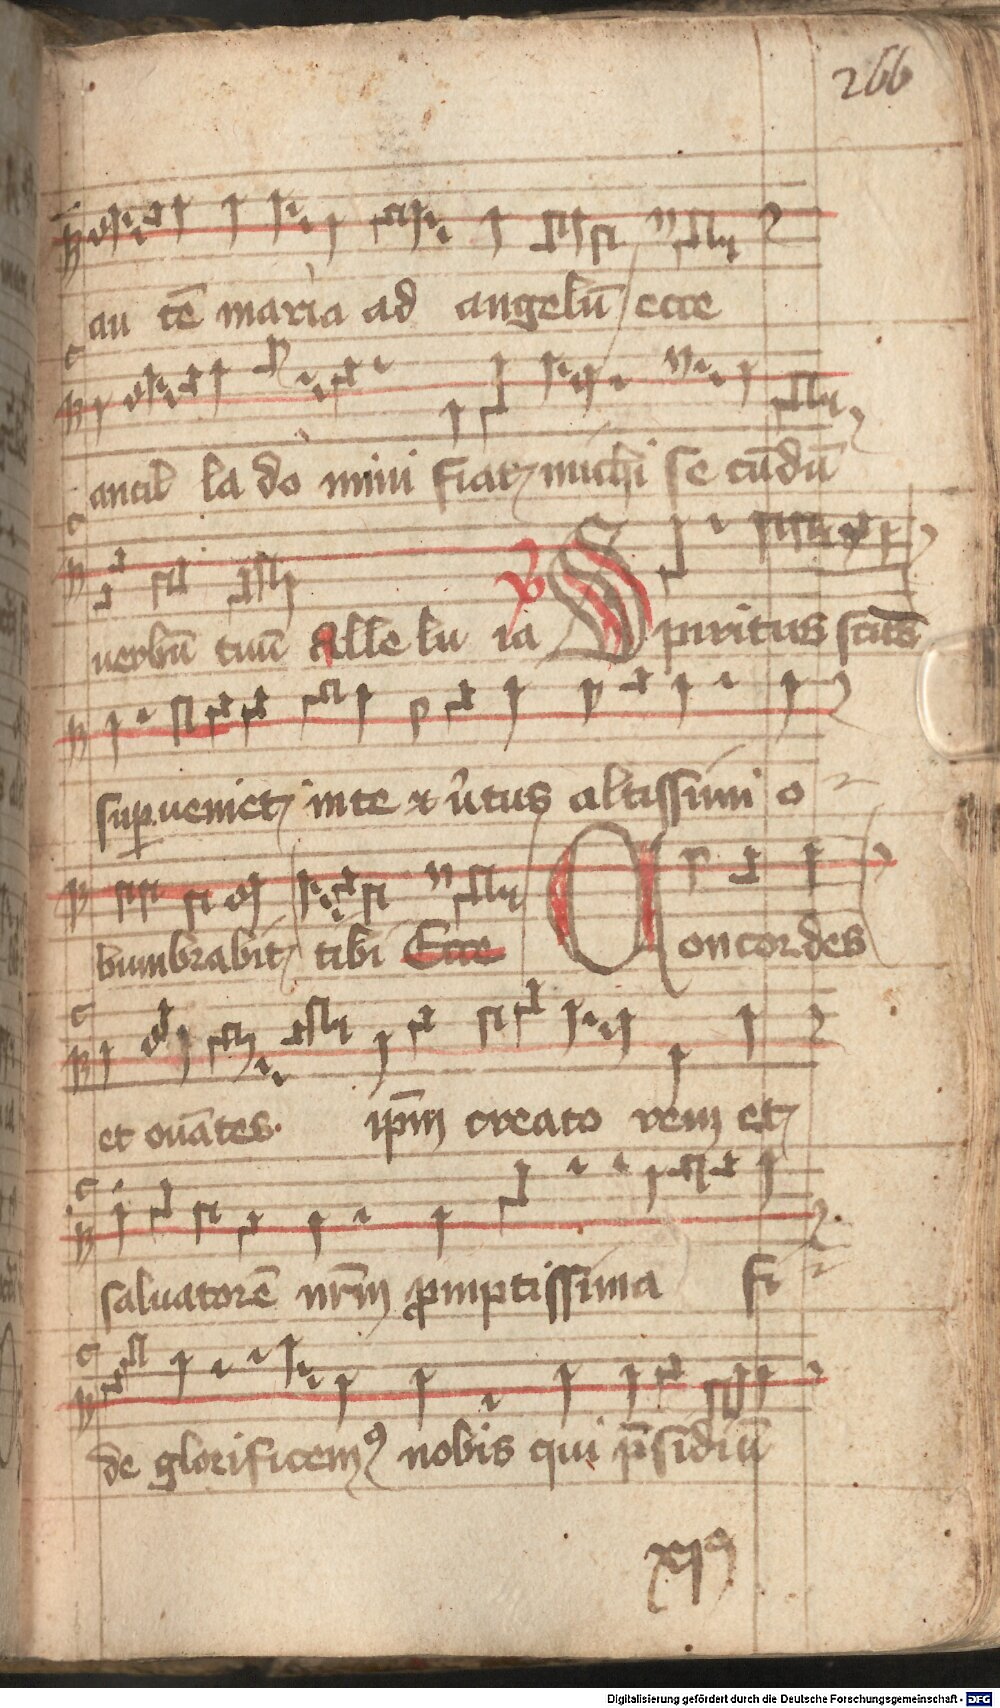 266
au tē maria ad angelū ecce
ancil la do mini fiat michi se cūdū
verbū tuū Alle lu ia Spiritus scūs
supveniet in te et v̄tus altissimi o
bumbrabit tibi Ecce Concordes
et ovātes. ip̄m creato rem et
salvatorē nr̄m promptissima fi
de glorificemꝰ nobis qui p̄sidiū
xiꝰ
Digitalisierung gefördert durch die Deutsche Forschungsgemeinschaft - DFG